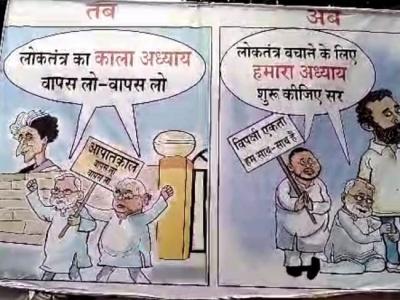 तब
लोकतंत्र का काला अध्याय
वापस लो-वापस लो
आपातकाल
वापस लो
अब
लोकतंत्र बचाने के लिए
हमारा अध्याय
शुरू कीजिए सर
विपक्षी एकता
हम साथ-साथ हैं